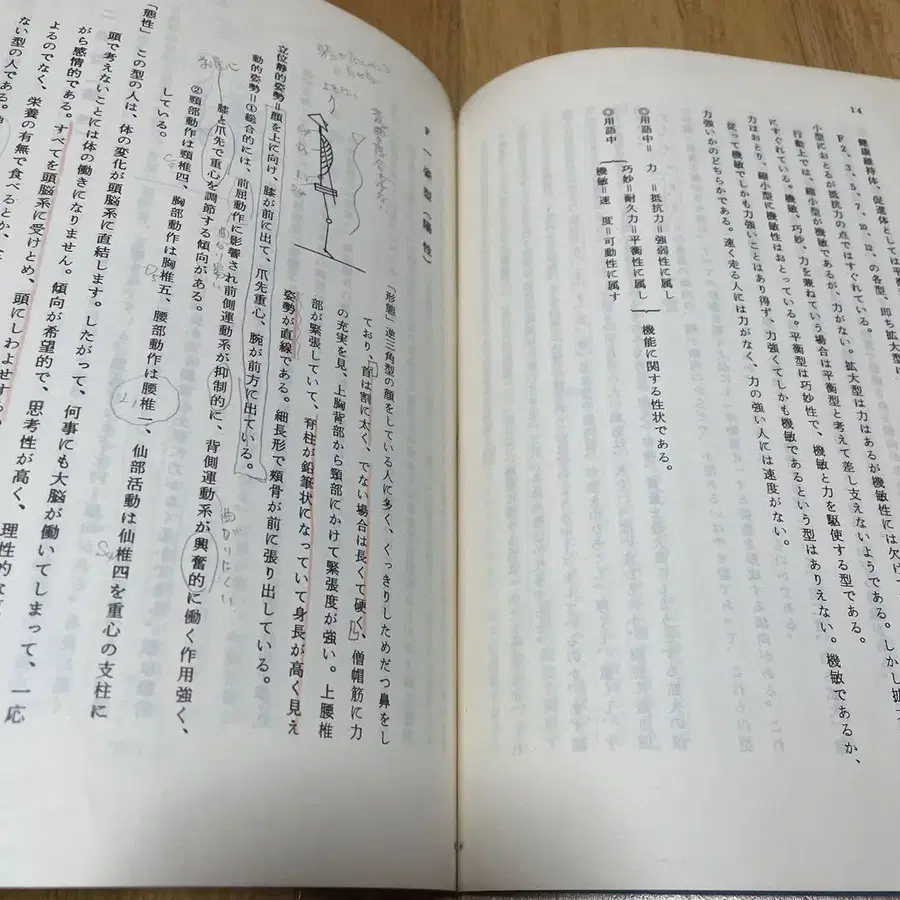 14
健康維持体、促進体としては平
F2、3、5、7、10、12、の各型、即ち拡大型に
小型におとるが抵抗力の点ではすぐれている。拡大型は力はあるが機敏性には欠け
行動上では、縮小型が機敏であるが、力がない。 しかし拡大
にすぐれている。機敏、巧妙、力を兼ねている場合は平衡型と考えて差し支えないようである。
力はおとり、縮小型に機敏性はおとっている。平衡型は巧妙性で、機敏と力を駆使する型である。
従って機敏でしかも力強いことはあり得ず、力強くてしかも機敏であるという型はありえない。機敏であるか、
力強いかのどちらかである。速く走る人には力がなく、力の強い人には速度がない。
◎用語中＝ 力 ＝抵抗力＝強弱性に属し
巧妙＝耐久力＝平衡性に属し 機能に関する性状である。
◎用語中 機敏＝速 度＝可動性に属す
F一 強型（陽性）
「形態」逆三角型の顔をしている人に多く、くっきりしためだつ鼻をし
ており、首は割に太く、でない場合は長くて硬く、僧帽筋に力
の充実を見、上胸背部から頸部にかけて緊張度が強い。上腰椎
部が緊張していて、脊柱が鉛筆状になっていて身長が高く見え
姿勢が直線である。細長形で頬骨が前に張り出している。
立位静的姿勢＝顔を上に向け、膝が前に出て、爪先重心、腕が前方に出ている。
動的姿勢＝①総合的には、前屈動作に影響され前側運動系が抑制的に、背側運動系が興奮的に働く作用強く、
膝と爪先で重心を調節する傾向がある。
曲がりにくい
②頸部動作は頸椎四、胸部動作は胸椎五、腰部動作は腰椎一、仙部活動は仙椎四を重心の支柱に
C4
D5
L1
S4
している。
「態性」この型の人は、体の変化が頭脳系に直結します。したがって、何事にも大脳が働いてしまって、一応
頭で考えないことには体の働きになりません。傾向が希望的で、思考性が高く、理性的な
がら感情的である。すべてを頭脳系に受けとめ、頭にしわよせする
よるのでなく、栄養の有無で食べるとか、
ない型の人である。